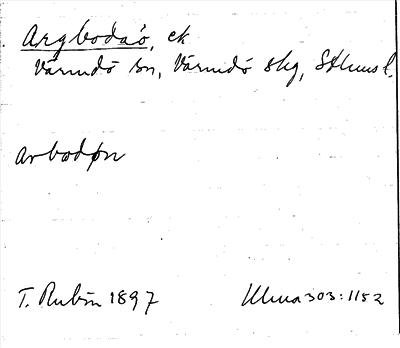 Argbodaö, ek
Värmdö sn, Värmdö skg, Sthms l.
arbodøn
T. Rubin 1897 Ulma 303:1152